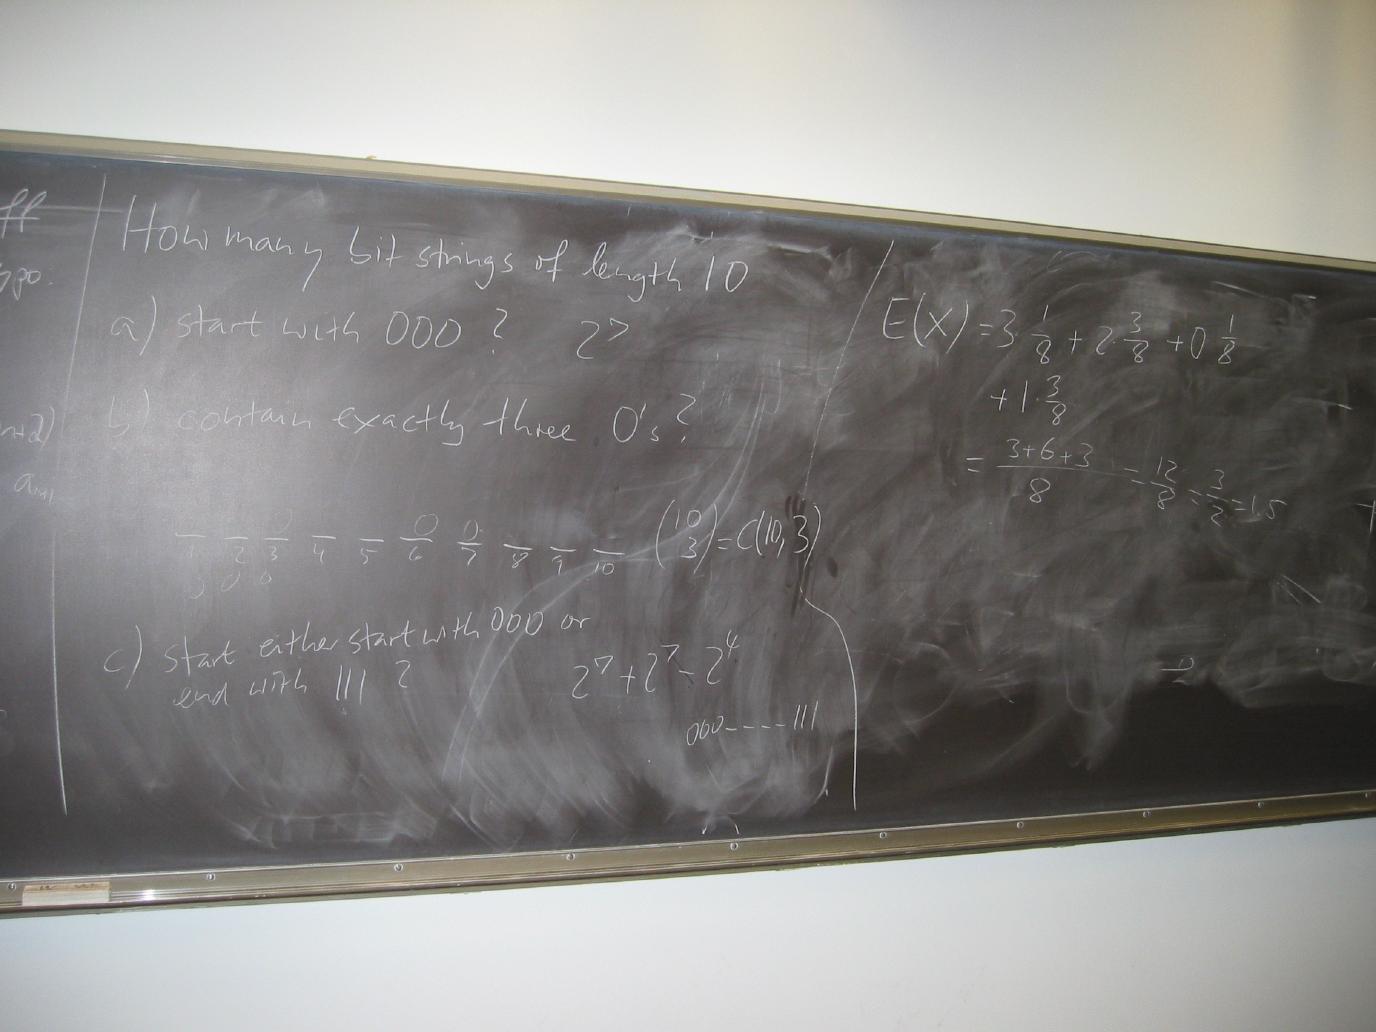 ff
ypo.
n+2)
How many bit strings of length 10
a) start with 000 ? 2^7
b) contain exactly three 0's ?
0 0 0
1 2 3 4 5 6 7 8 9 10
0 0 0
(10 3) = C(10, 3)
c) start either start with 000 or
end with 111 ?
2^7 + 2^7 - 2^4
000----111
E(X) = 3·1/8 + 2·3/8 + 0 1/8
+ 1·3/8
= 3+6+3/8 = 12/8 = 3/2 = 1.5